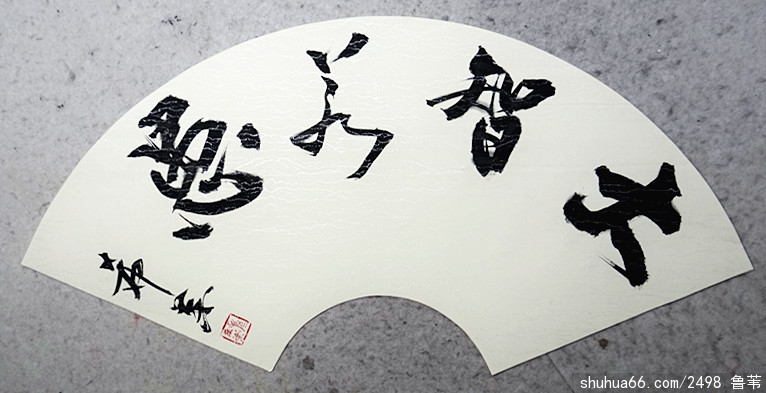 大智若愚
shuhua66.com/2498 鲁苇